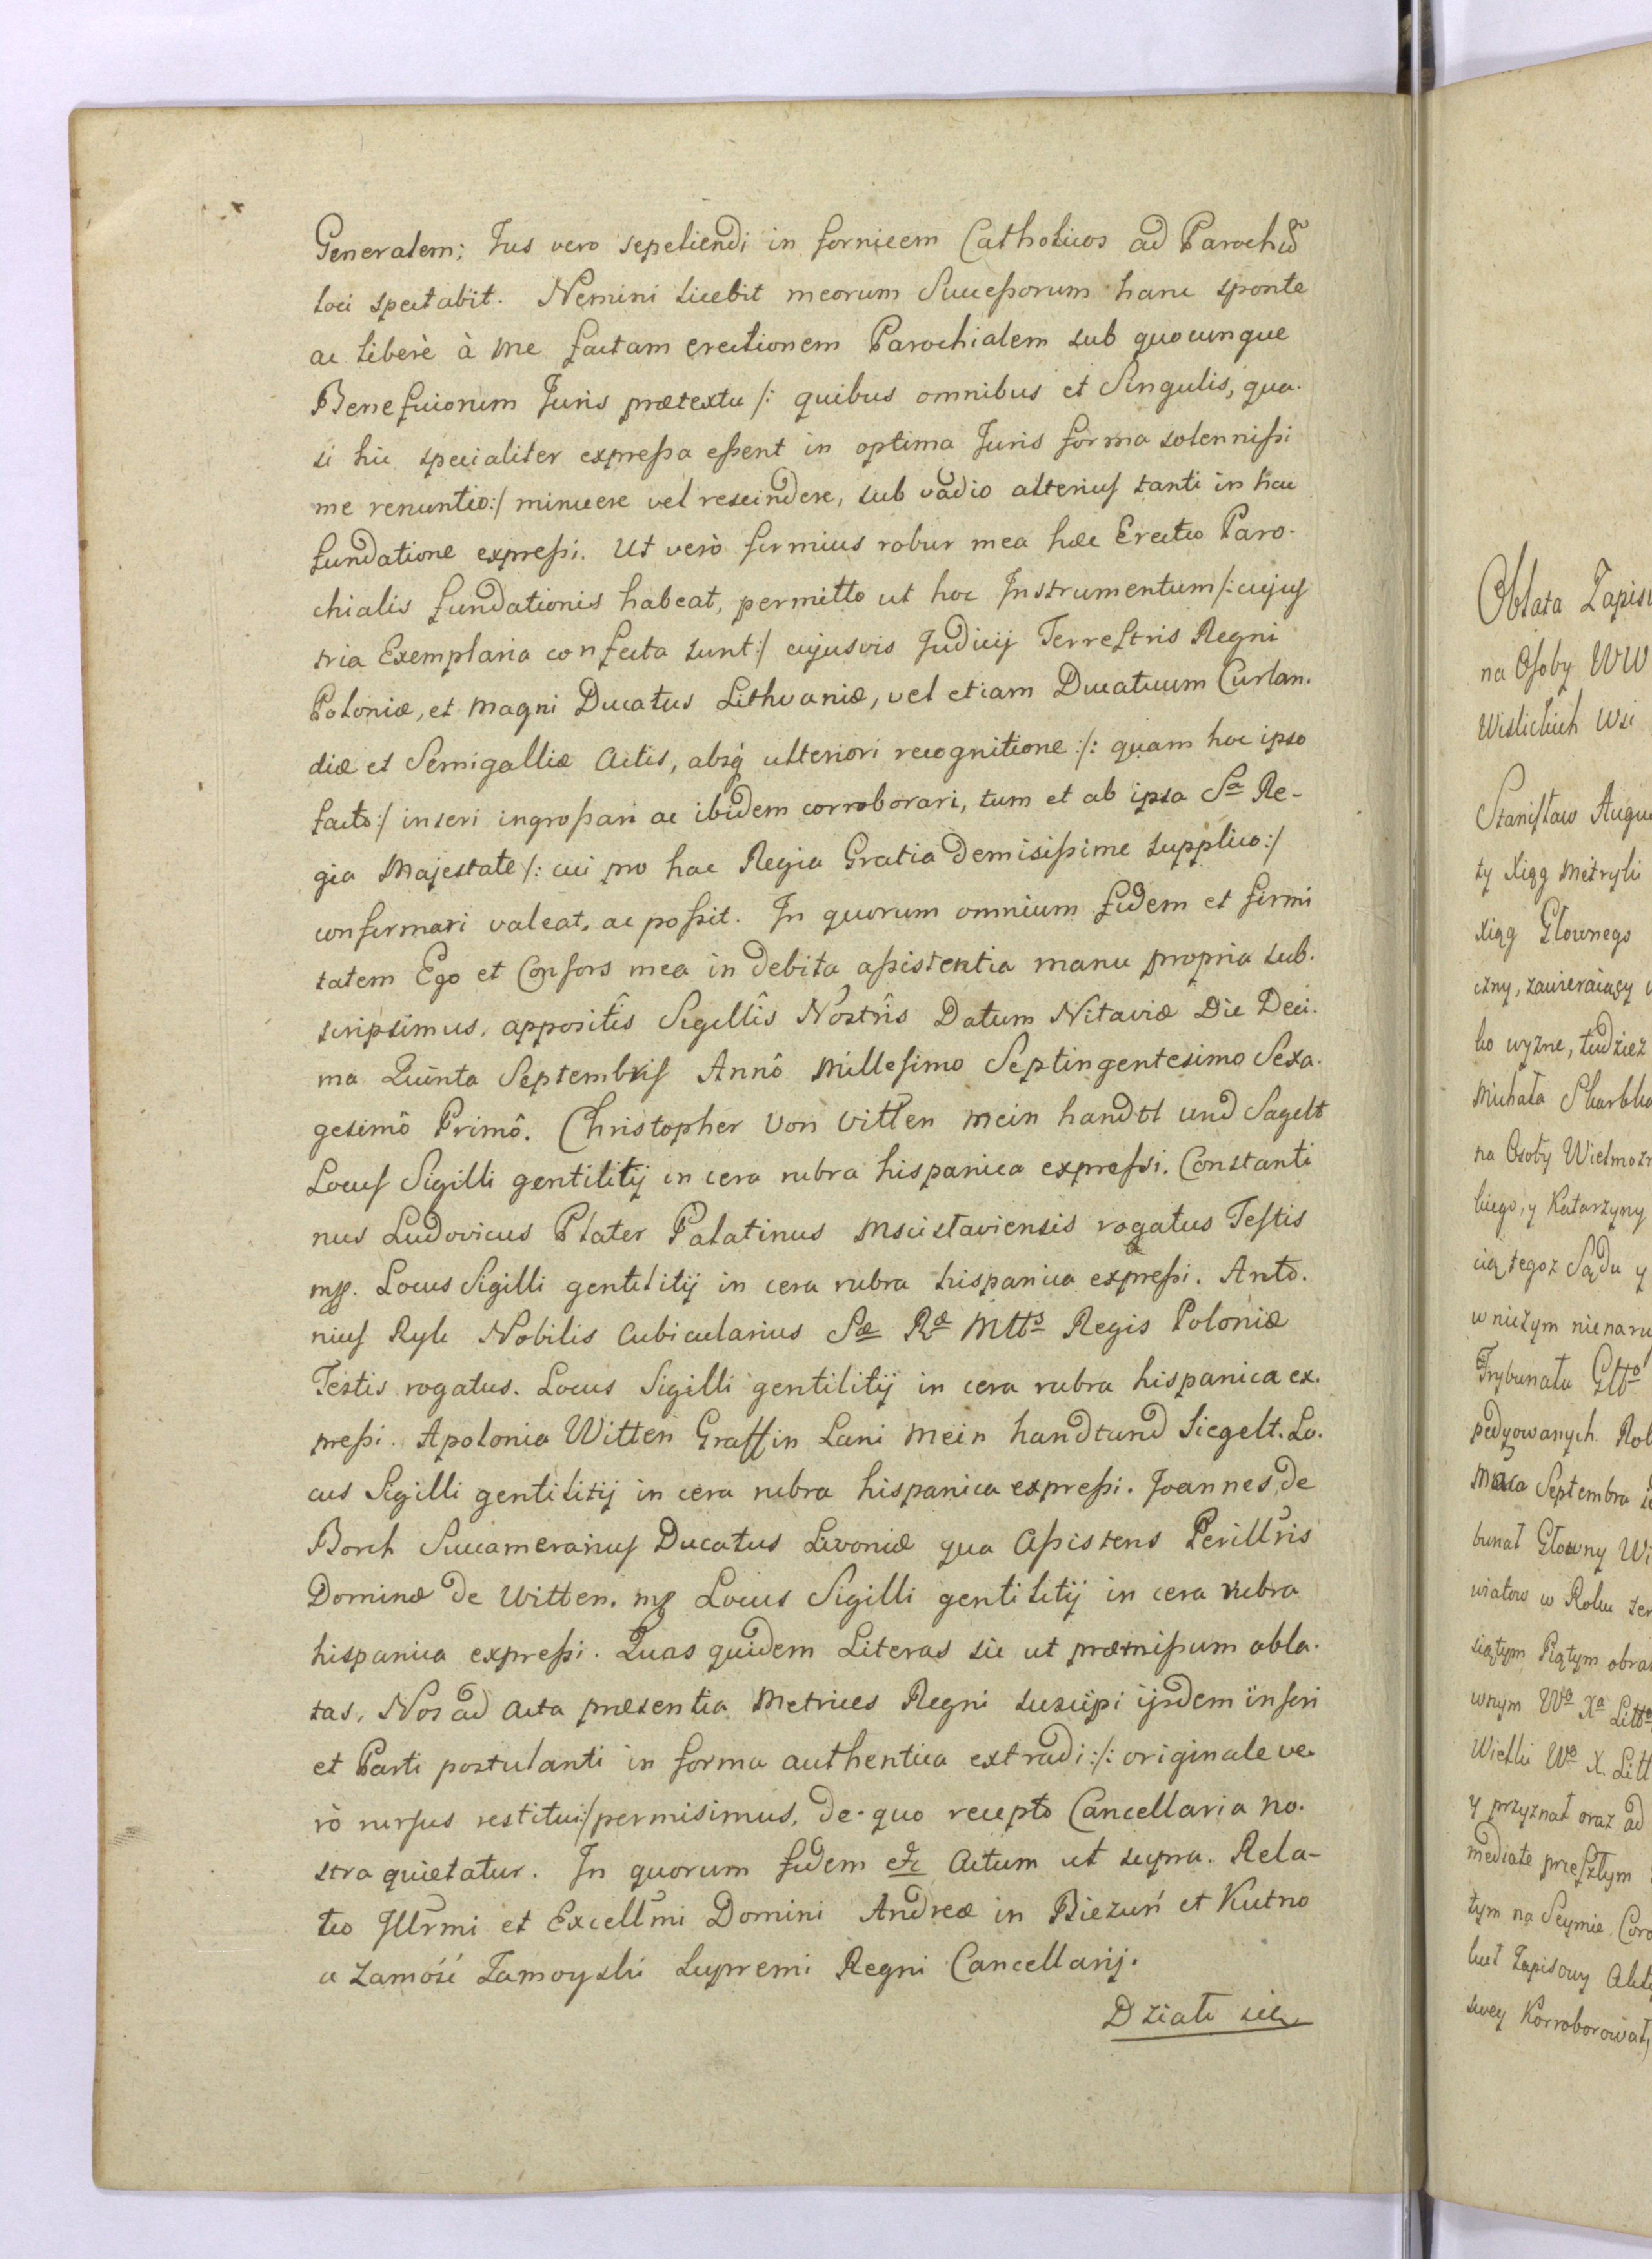 Generalem; Jus vero sepeliendi in fornicem Catholicos ad Parochũ
loci spectabit. Nemini licebit meorum Succeßorum hanc sponte
ac liberè à me factam erectionem Parochialem sub quocunque
Beneficiorum Juris prætextu /: quibus omnibus et Singulis, qua-
si hic specialiter expreßa eßent in optima Juris forma solennißi
me renuntio:/ minuere vel rescindere, sub vadio alterius tanti in hac
fundatione expreßi. Ut verò firmius robur mea hæc Erectio Paro-
chialis fundationis habeat, permitto ut hoc Instrumentum /: cujus
tria Exemplaria confecta sunt:/ cujusvis Judicij Terrestris Regni
Poloniæ, et Magni Ducatus Lithvaniæ, vel etiam Ducatuum Curlan-
diæ et Semigalliæ Actis, absq̃ ulteriori recognitione :/: quam hoc ipso
facto:/ inseri ingroßari ac ibidem corroborari, tum et ab ipsa Sa Re-
gia Majestate /: cui pro hac Regia Gratia demisißime supplico:/
confirmari valeat, ac poßit. In quorum omnium fidem et firmi
tatem Ego et Consors mea in debita aßistentia manu propria sub-
scripsimus, appositîs Sigillîs Nostrîs Datum Nitaviæ Die Deci-
ma Quinta Septembris Annô Millesimo Septingentesimo Sexa-
gesimô Primô. Christopher Von Vitten mein handtt und Sagelt
Locus Sigilli gentilitij in cera rubra hispanica expressi. Constanti
nus Ludovicus Plater Palatinus Mscislaviensis rogatus Testis
mpp. Locus Sigilli gentilitij in cera rubra hispanica expreßi. Anto-
nius Ryk Nobilis Cubicularius Sæ Ræ Mttis Regis Poloniæ
Testis rogatus. Locus Sigilli gentilitij in cera rubra hispanica ex-
preßi. Apolonia Witten Graffin Lani mein handtund Siegelt. Lo-
cus Sigilli gentilitij in cera rubra hispanica expreßi. Joannes de
Borch Succamerarius Ducatus Livoniæ qua Aßistens Perillris
Dominæ de Witten. mp Locus Sigilli gentilitij in cera rubra
hispanica expreßi. Quas quidem Literas sic ut præmißum obla-
tas, Nos ad Acta præsentia Metrices Regni suscipi ijsdem inseri
et Parti postulanti in forma authentica extradi :/: originale ve-
rò rursus restitui:/ permisimus, de-quo recepto Cancellaria no-
stra quietatur. In quorum fidem etc Actum ut supra. Rela-
tio Jllrmi et Excellmi Domini Andreæ in Biezuń et Kutno
a Zamość Zamoyski Supremi Regni Cancellarij.
Działo się
Oblata Zapisu
na Osoby WW
Wislickich Wsi
Stanisław Augu
ty Xiąg Metryki
Xiąg Głownego
czny, zawieraiący
ko wyzne, tudziez
Michała Skarbko
na Osoby Wielmozn
kiego, y Katarzyny
cią tegoz Sądu y
w niczym nienaru
Trybunału Głłgo
pedyowanych. Rok
Mca Septembra
bunał Głowny Wi
wiatow w Roku ter
siątym Piątym obra
wnym Wo Xa Litto
Wielki Wo X. Litt
y przyznał oraz ad
mediate przeszłym
tym na Seymie Coro
swey Korroborował,